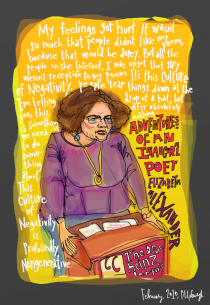 My feelings got hurt. It wasn't
so much that people didnt like my poem,
because that would be dopey. But all the
people on the Internet, I was upset that they
werent receptive to my poem. Its this culture
of Negativity. people tear things down at the
drop of a hat, but
I'm telling
you, this
is
Something
we need
to do
some-
thing
about
This
Culture
of
Negativity
is
Profoundly
Nongenerative
ADVENTURES
OF AN
INAUGURAL
POET
ELIZABETH
ALEXANDER
February, 2010. Pittsburgh